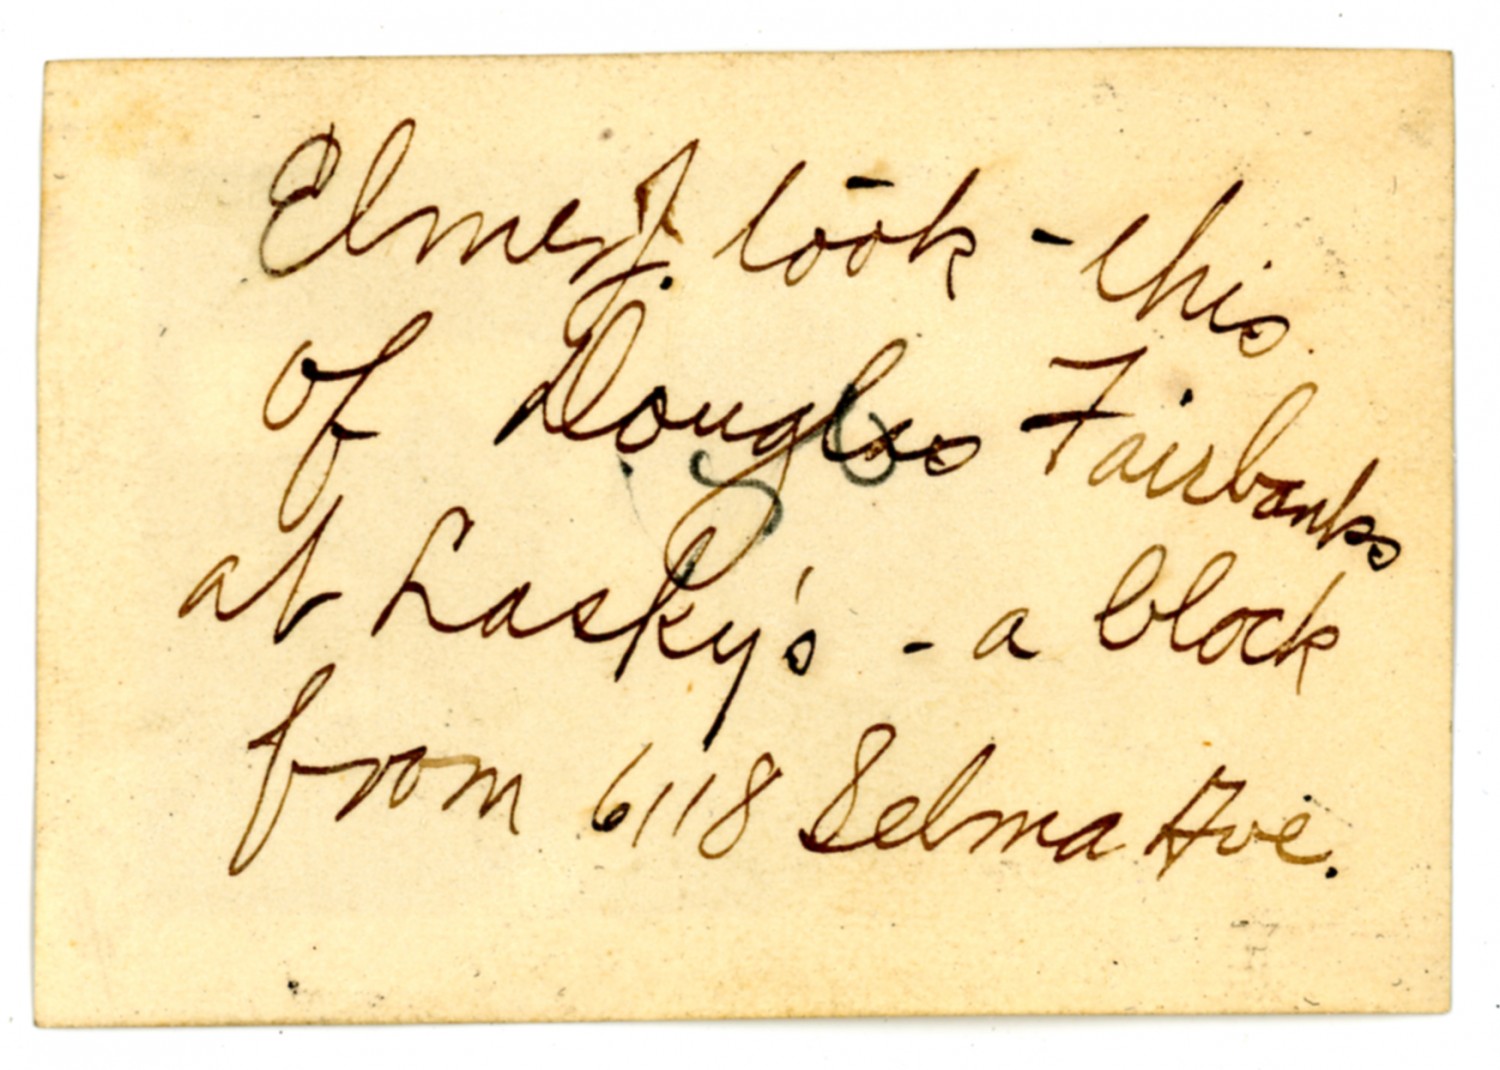 Elmer J. took - this
of Douglas Fairbanks
at Lasky's - a block
from 6118 Selma Ave.